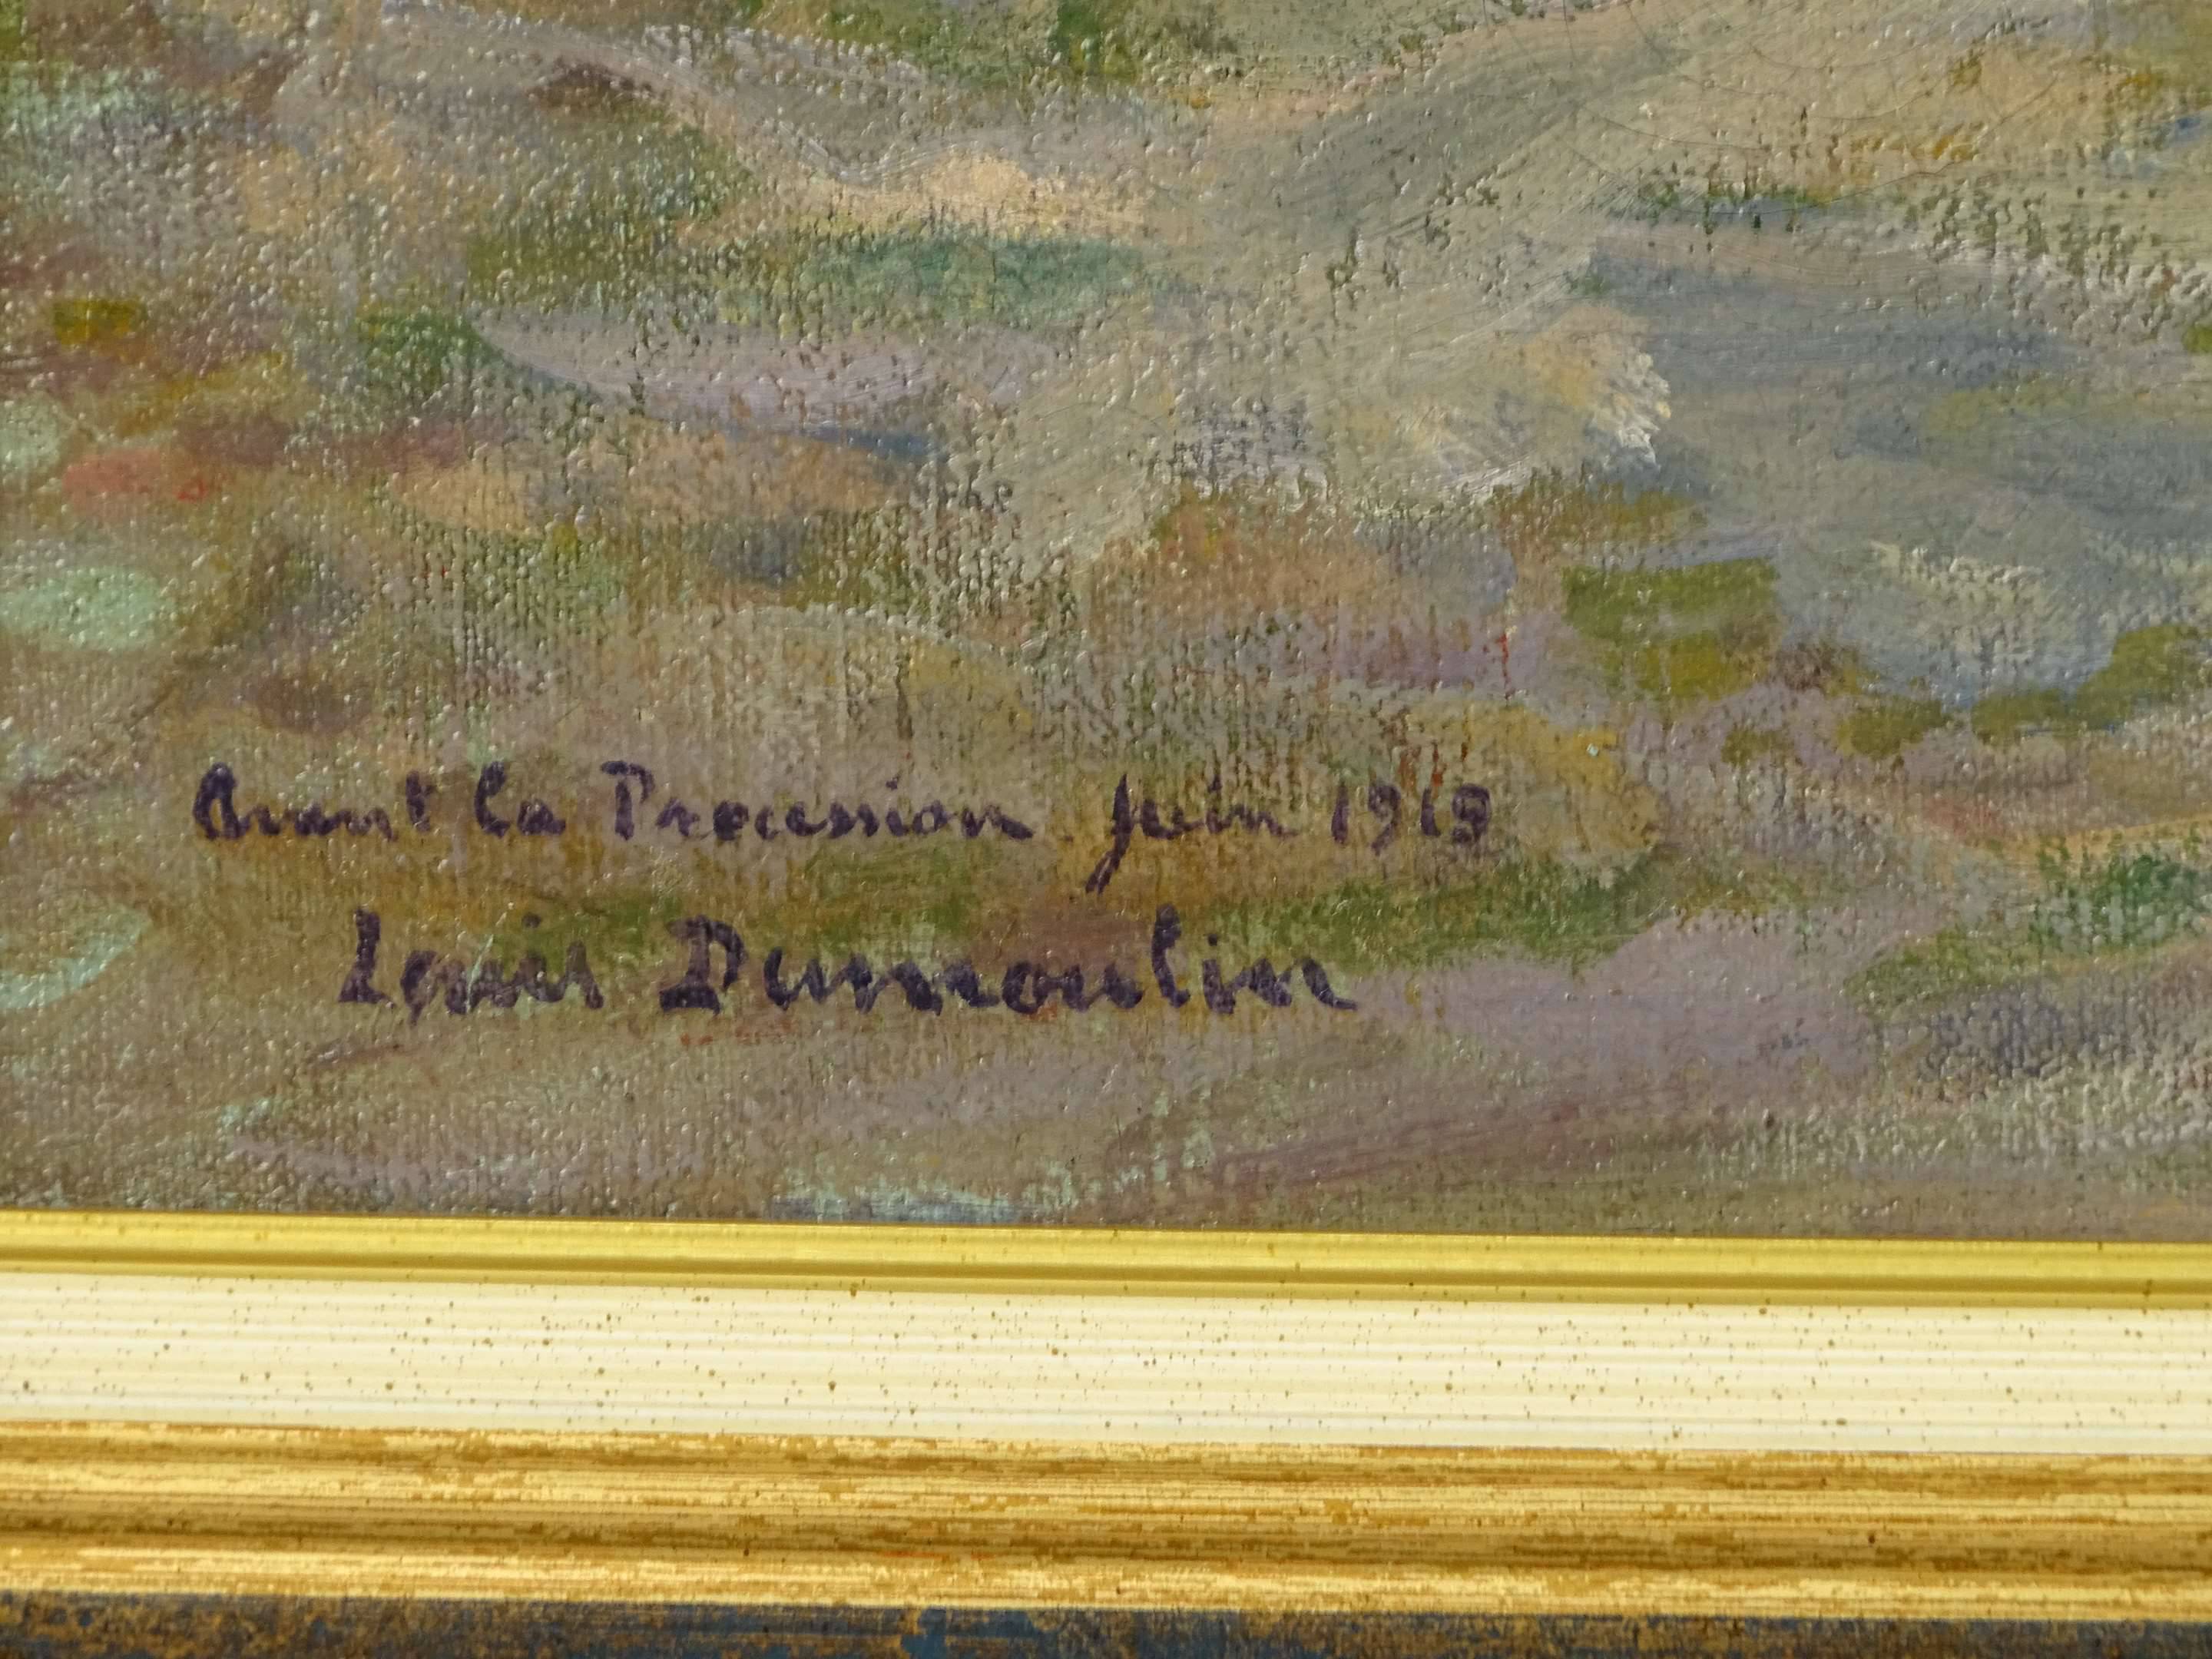 Avant la Procession juin 1919
Louis Dumoulin